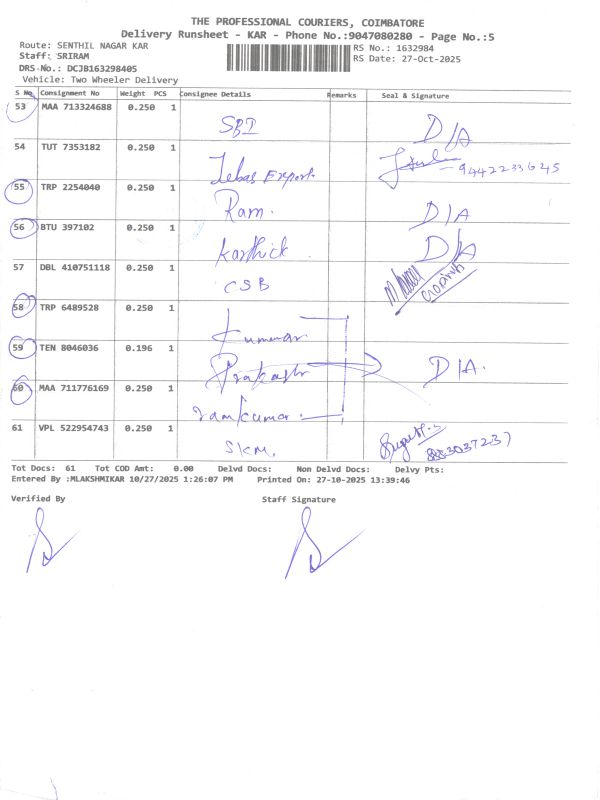 THE PROFESSIONAL COURIERS, COIMBATORE
Delivery Runsheet - KAR - Phone No.:9047080280 - Page No.:5
Route: SENTHIL NAGAR KAR RS No.: 1632984
Staff: SRIRAM RS Date: 27-Oct-2025
DRS No.: DCJB163298405
Vehicle: Two Wheeler Delivery
S No Consignment No Weight PCS Consignee Details Remarks Seal & Signature
53 MAA 713324688 0.250 1 SBI D/A
54 TUT 7353182 0.250 1 Export 9442233645
55 TRP 2254040 0.250 1 Ram. D/A
56 BTU 397102 0.250 1 Karthick D/A
57 DBL 410751118 0.250 1 CSB
58 TRP 6489528 0.250 1 Kummar
59 TEN 8046036 0.196 1 Prakash D/A.
60 MAA 711776169 0.250 1 ramkumar.
61 VPL 522954743 0.250 1 SKM.
Tot Docs: 61 Tot COD Amt: 0.00 Delvd Docs: Non Delvd Docs: Delvy Pts:
Entered By :MLAKSHMIKAR 10/27/2025 1:26:07 PM Printed On: 27-10-2025 13:39:46
Verified By Staff Signature